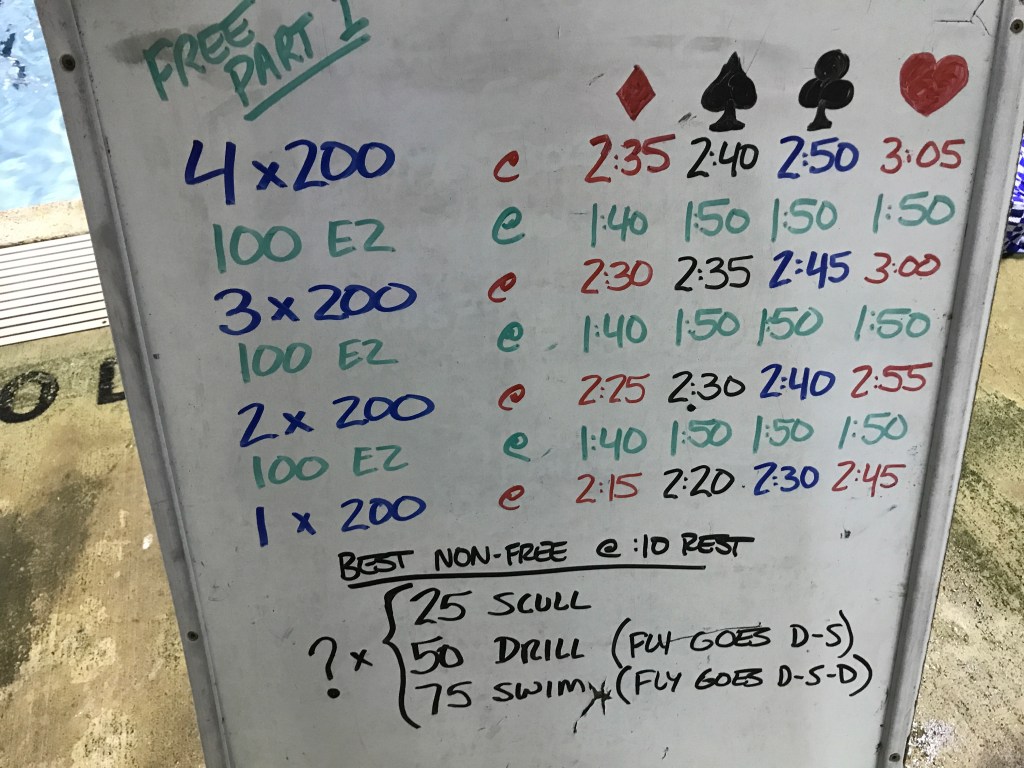 FREE
PART 1
4 x 200 @ 2:35 2:40 2:50 3:05
100 EZ @ 1:40 1:50 1:50 1:50
3 x 200 @ 2:30 2:35 2:45 3:00
100 EZ @ 1:40 1:50 1:50 1:50
2 x 200 @ 2:25 2:30 2:40 2:55
100 EZ @ 1:40 1:50 1:50 1:50
1 x 200 @ 2:15 2:20 2:30 2:45
BEST NON-FREE @ :10 REST
25 SCULL
? x 50 DRILL (FLY GOES D-S)
75 SWIM (FLY GOES D-S-D)